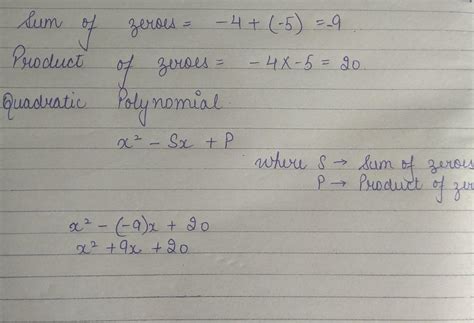 Sum of zeroes = -4 + (-5) = -9
Product of zeroes = -4 x -5 = 20
Quadratic Polynomial
x² - Sx + P
where S → Sum of zeroes
P → Product of zer
x² - (-9)x + 20
x² + 9x + 20